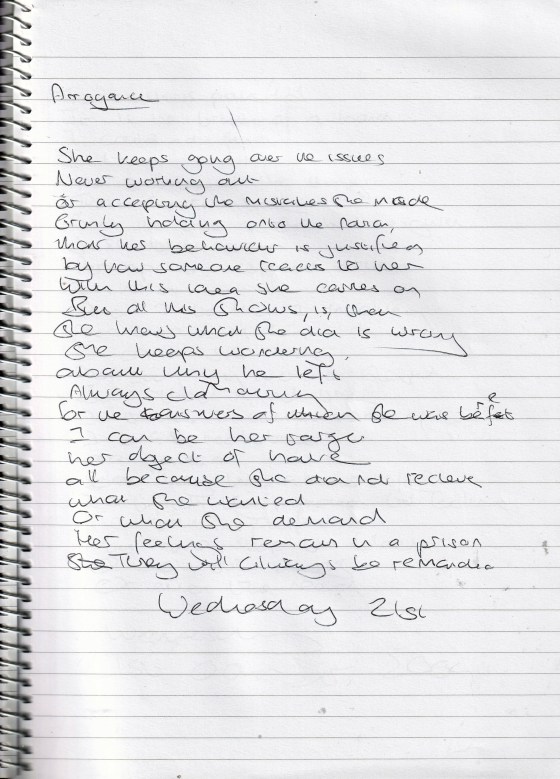 Arrogance
She keeps going over the issues
Never working out
Or accepting the mistakes she made
Grimly holding onto the
that her behaviour is justified
by how someone reacts to her
With this idea she carries on
But all this shows, is, that
She knows what she did is wrong
She keeps wondering,
about why he left
Always clamouring
for the answers of which she was bereft
I can be her target
her object of
all because she did not recieve
what she wanted
Or what she demand
Her feelings remain in a prison
They will always be
Wednesday 21st